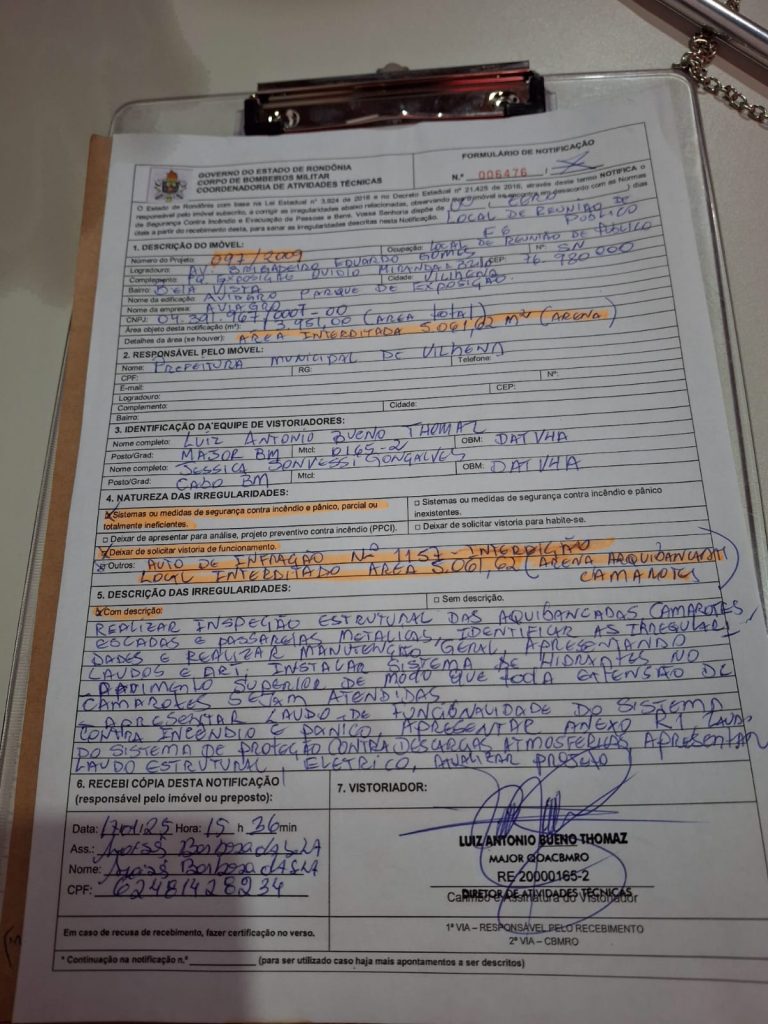 GOVERNO DO ESTADO DE RONDÔNIA
CORPO DE BOMBEIROS MILITAR
COORDENADORIA DE ATIVIDADES TÉCNICAS
FORMULÁRIO DE NOTIFICAÇÃO
N.º 006476 /
O Estado de Rondônia com base na Lei Estadual nº 3.924 de 2016 e no Decreto Estadual nº 21.425 de 2016, através deste termo NOTIFICA o
responsável pelo imóvel subscrito, a corrigir as irregularidades abaixo relacionadas, observando que o imóvel se encontra em desacordo com as Normas
de Segurança Contra Incêndio e Evacuação de Pessoas e Bens. Vossa Senhoria dispõe de 00 ( ZERO ) dias
úteis a partir do recebimento desta, para sanar as irregularidades descritas nesta Notificação. LOCAL DE REUNIÃO DE PÚBLICO
1. DESCRIÇÃO DO IMÓVEL:
Número do Projeto: 097/2009 Ocupação: LOCAL DE REUNIÃO DE PÚBLICO
Logradouro: AV. BRIGADEIRO EDUARDO GOMES Nº: SN
Complemento: PQ EXPOSIÇÃO OVIDIO MIRANDA BRITO CEP: 76.980000
Bairro: BELA VISTA Cidade: VILHENA
Nome da edificação: AVIAGRO PARQUE DE EXPOSIÇÃO
Nome da empresa: AVIAGRO
CNPJ: 04.301.967/0001-00
Área objeto desta notificação (m²): 13.951,00 (AREA TOTAL)
Detalhes da área (se houver): AREA INTERDITADA 5.061,62 M² (ARENA)
2. RESPONSÁVEL PELO IMÓVEL:
Nome: PREFEITURA MUNICIPAL DE VILHENA
CPF: RG: Telefone:
E-mail:
Logradouro: Nº:
Complemento: CEP:
Bairro: Cidade:
3. IDENTIFICAÇÃO DA EQUIPE DE VISTORIADORES:
Nome completo: LUIZ ANTONIO BUENO THOMAZ
Posto/Grad: MAJOR BM Mtcl: 0165-2 OBM: DATVHA
Nome completo: JESSICA BONVESSI GONÇALVES
Posto/Grad: CABO BM Mtcl: OBM: DATVHA
4. NATUREZA DAS IRREGULARIDADES:
Sistemas ou medidas de segurança contra incêndio e pânico, parcial ou
totalmente ineficientes.
□ Sistemas ou medidas de segurança contra incêndio e pânico
inexistentes.
□ Deixar de apresentar para análise, projeto preventivo contra incêndio (PPCI).
□ Deixar de solicitar vistoria para habite-se.
Deixar de solicitar vistoria de funcionamento.
Outros: AUTO DE INFRAÇÃO Nº 1157 - INTERDIÇÃO
LOCAL INTERDITADO AREA 5.061,62 (ARENA ARQUIBANCADAS
CAMAROTES)
5. DESCRIÇÃO DAS IRREGULARIDADES:
Com descrição:
□ Sem descrição.
REALIZAR INSPEÇÃO ESTRUTURAL DAS AQUIBANCADAS CAMAROTES,
ESCADAS E PASSARELAS METALICAS, IDENTIFICAR AS IRREGULARI-
DADES E REALIZAR MANUTENÇÃO GERAL, APRESENTANDO
LAUDOS E ART; INSTALAR SISTEMA DE HIDRANTES NO
PAVIMENTO SUPERIOR DE MODO QUE TODA EXTENSÃO DE
CAMAROTES SEJAM ATENDIDAS
- APRESENTAR LAUDO DE FUNCIONALIDADE DO SISTEMA
CONTRA INCENDIO E PANICO, APRESENTAR ANEXO R1, LAUDO
DO SISTEMA DE PROTEÇÃO CONTRA DESCARGAS ATMOSFERIAS, APRESENTAR
LAUDO ESTRUTURAL, ELETRICO, ATUALIZAR PROJETO
6. RECEBI CÓPIA DESTA NOTIFICAÇÃO
(responsável pelo imóvel ou preposto):
Data: Hora: 15 h 36min
Ass.: Barbosa da Silva
Nome: Barbosa da Silva
CPF: 62481428234
Em caso de recusa de recebimento, fazer certificação no verso.
7. VISTORIADOR:
LUIZ ANTONIO BUENO THOMAZ
MAJOR QOACBMRO
RE 20000165-2
DIRETOR DE ATIVIDADES TÉCNICAS
Carimbo e Assinatura do Vistoriador
1ª VIA – RESPONSÁVEL PELO RECEBIMENTO
2ª VIA – CBMRO
* Continuação na notificação n.º (para ser utilizado caso haja mais apontamentos a ser descritos)